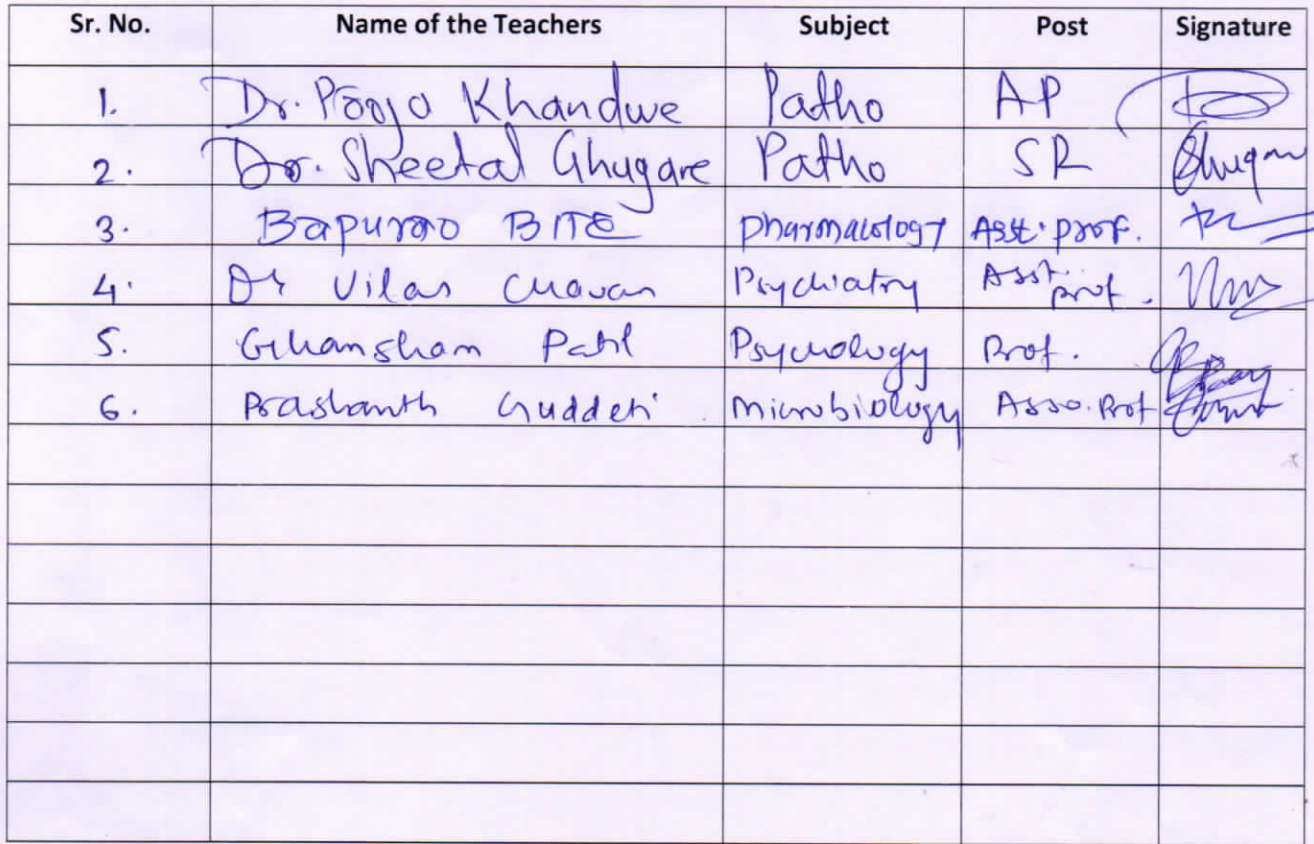 Sr. No. Name of the Teachers Subject Post Signature
1. Dr. Pooja Khandwe Patho AP
2. Dr. Sheetal Ghugare Patho SR
3. Bapurao BITE Pharmacology Asst. prof.
4. Dr Vilas Chavan Psychiatry Asst. prof.
5. Ghansham Patil Psychology Prof.
6. Prashanth Guddeti Microbiology Asso. Prof